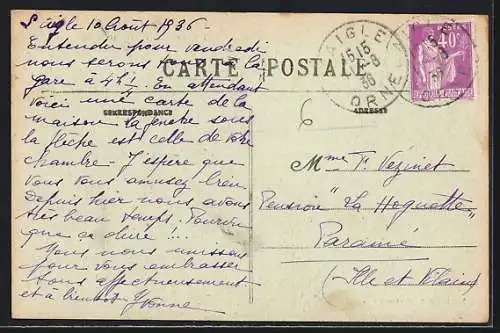 L'aigle 10 Août 1936
Entendu pour vendredi
nous serons à la
gare à 4h! En attendant
CARTE POSTALE
voici une carte de la
maison la fenêtre sous
CORRESPONDANCE
ADRESSE
la flèche est celle de votre
chambre. J'espère que
vous vous amusez bien
Depuis hier nous avons
très beau temps. Pourvu
que ça dure !!..
Nous nous unissons
pour vous embrasser
tous affectueusement
et à bientôt Yvonne
L'AIGLE
15 15
-8
36
ORNE
40c
6
Mme F. Vezinet
Pension "La Hoguette"
Paramé
(Ille et Vilaine)